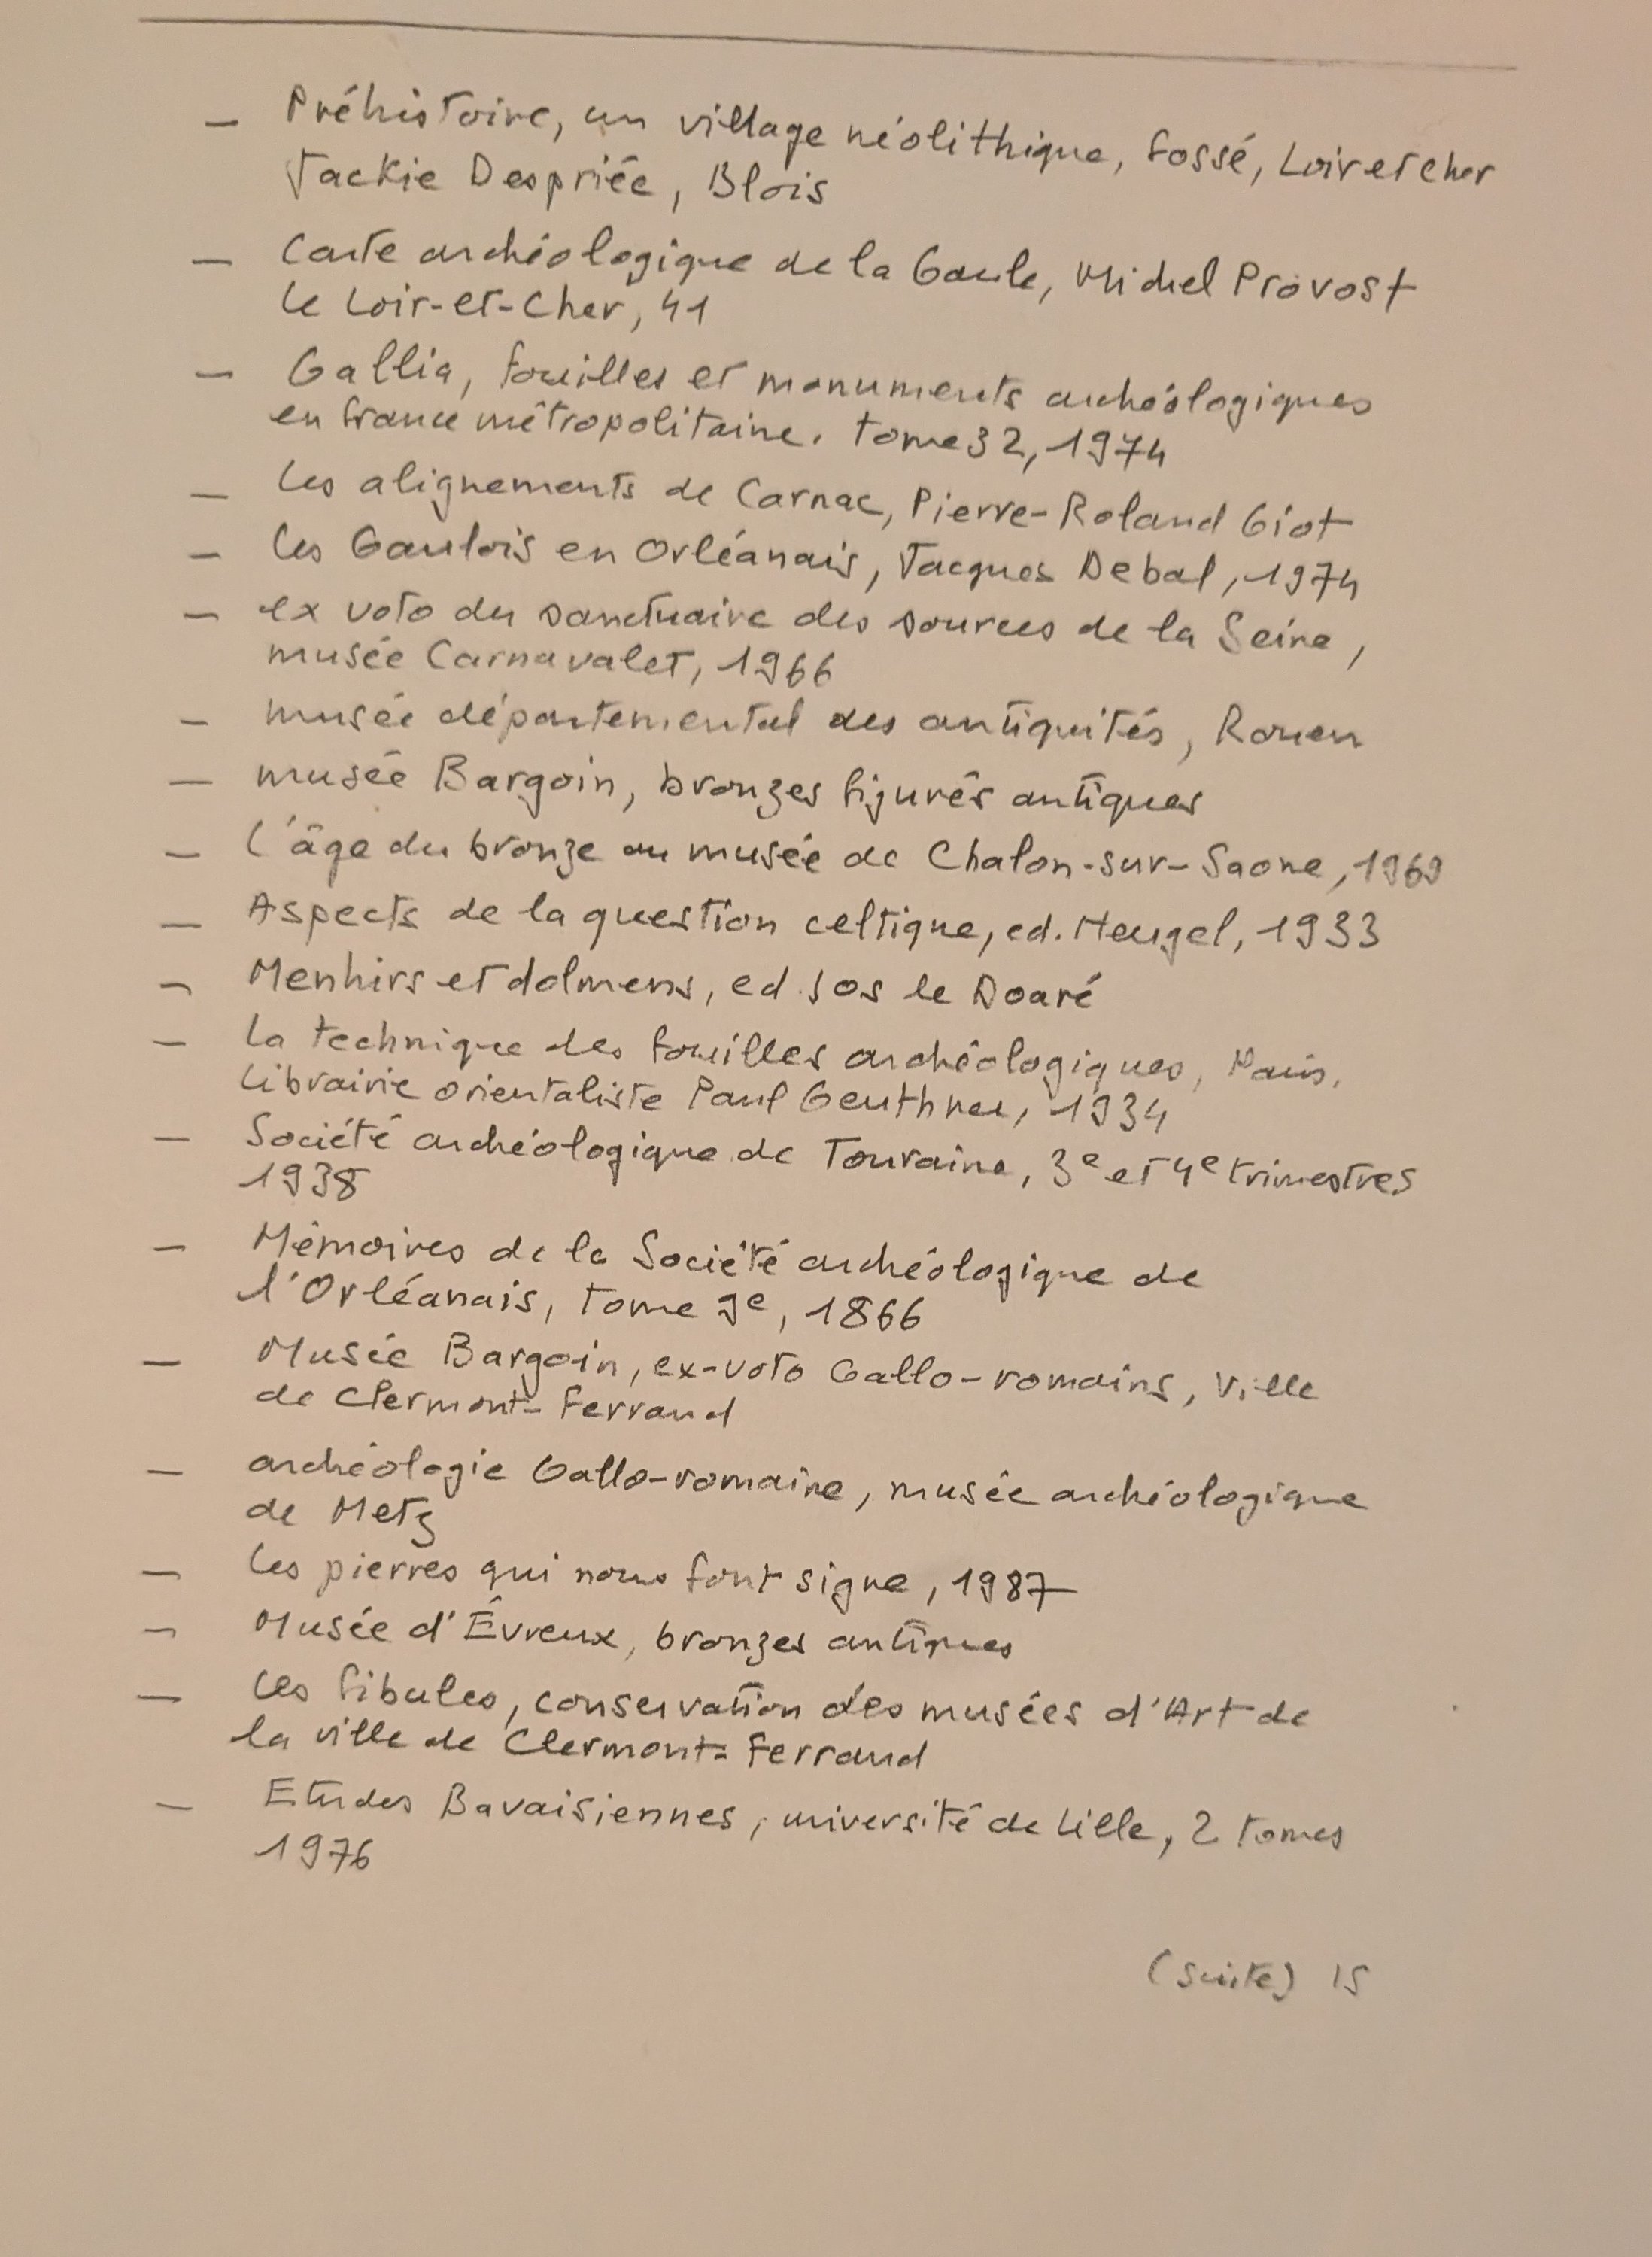 — Préhistoire, un village néolithique, Fossé, Loir et Cher
Jackie Despriée, Blois
— Carte archéologique de la Gaule, Michel Provost
le Loir-et-Cher, 41
— Gallia, fouilles et monuments archéologiques
en France métropolitaine. tome 32, 1974
— les alignements de Carnac, Pierre-Roland Giot
— les Gaulois en Orléanais, Jacques Debal, 1974
— ex voto du sanctuaire des sources de la Seine,
musée Carnavalet, 1966
— musée départemental des antiquités, Rouen
— musée Bargoin, bronzes figurés antiques
— l'âge du bronze au musée de Chalon-sur-Saone, 1969
— Aspects de la question celtique, ed. Heugel, 1933
— Menhirs et dolmens, ed. Jos le Doaré
— la technique des fouilles archéologiques, Paris,
librairie orientaliste Paul Geuthner, 1934
— Société archéologique de Touraine, 3e et 4e trimestres
1938
— Mémoires de la Société archéologique de
l'Orléanais, tome 9e, 1866
— Musée Bargoin, ex-voto Gallo-romains, Ville
de Clermont-Ferrand
— archéologie Gallo-romaine, musée archéologique
de Metz
— les pierres qui nous font signe, 1987
— Musée d'Évreux, bronzes antiques
— les fibules, conservation des musées d'Art de
la ville de Clermont-Ferrand
— Etudes Bavaisiennes, université de Lille, 2 tomes
1976
(suite) 15